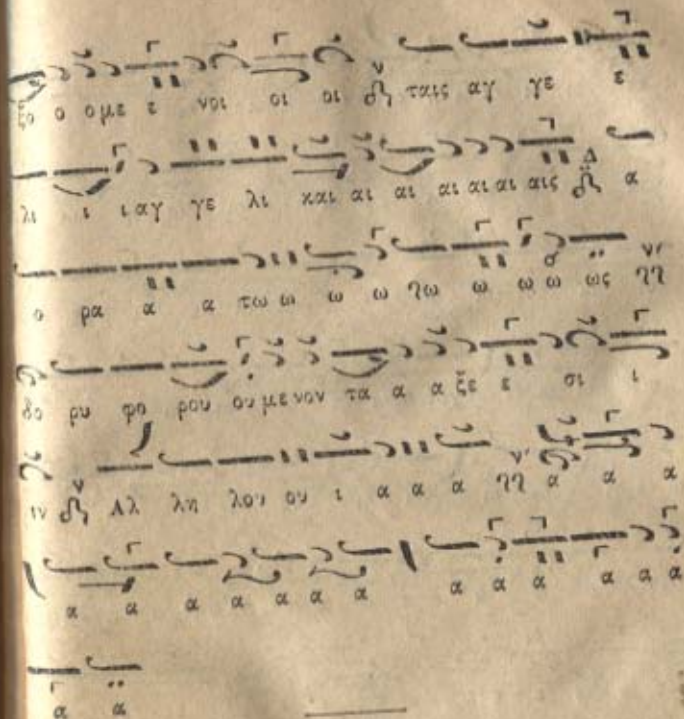 ξο ο ο με ε νοι οι οι ταις αγ γε ε
λι ι ι αγ γε λι και αι αι αι αι αι αις α
ο ρα α α τω ω ω ω ω ω ω ως
δο ρυ φο ρου ου με νον τα α α ξε ε σι ι
ιν Αλ λη λου ου ι α α α α α α
α α α α α α α α α α α α α
α α